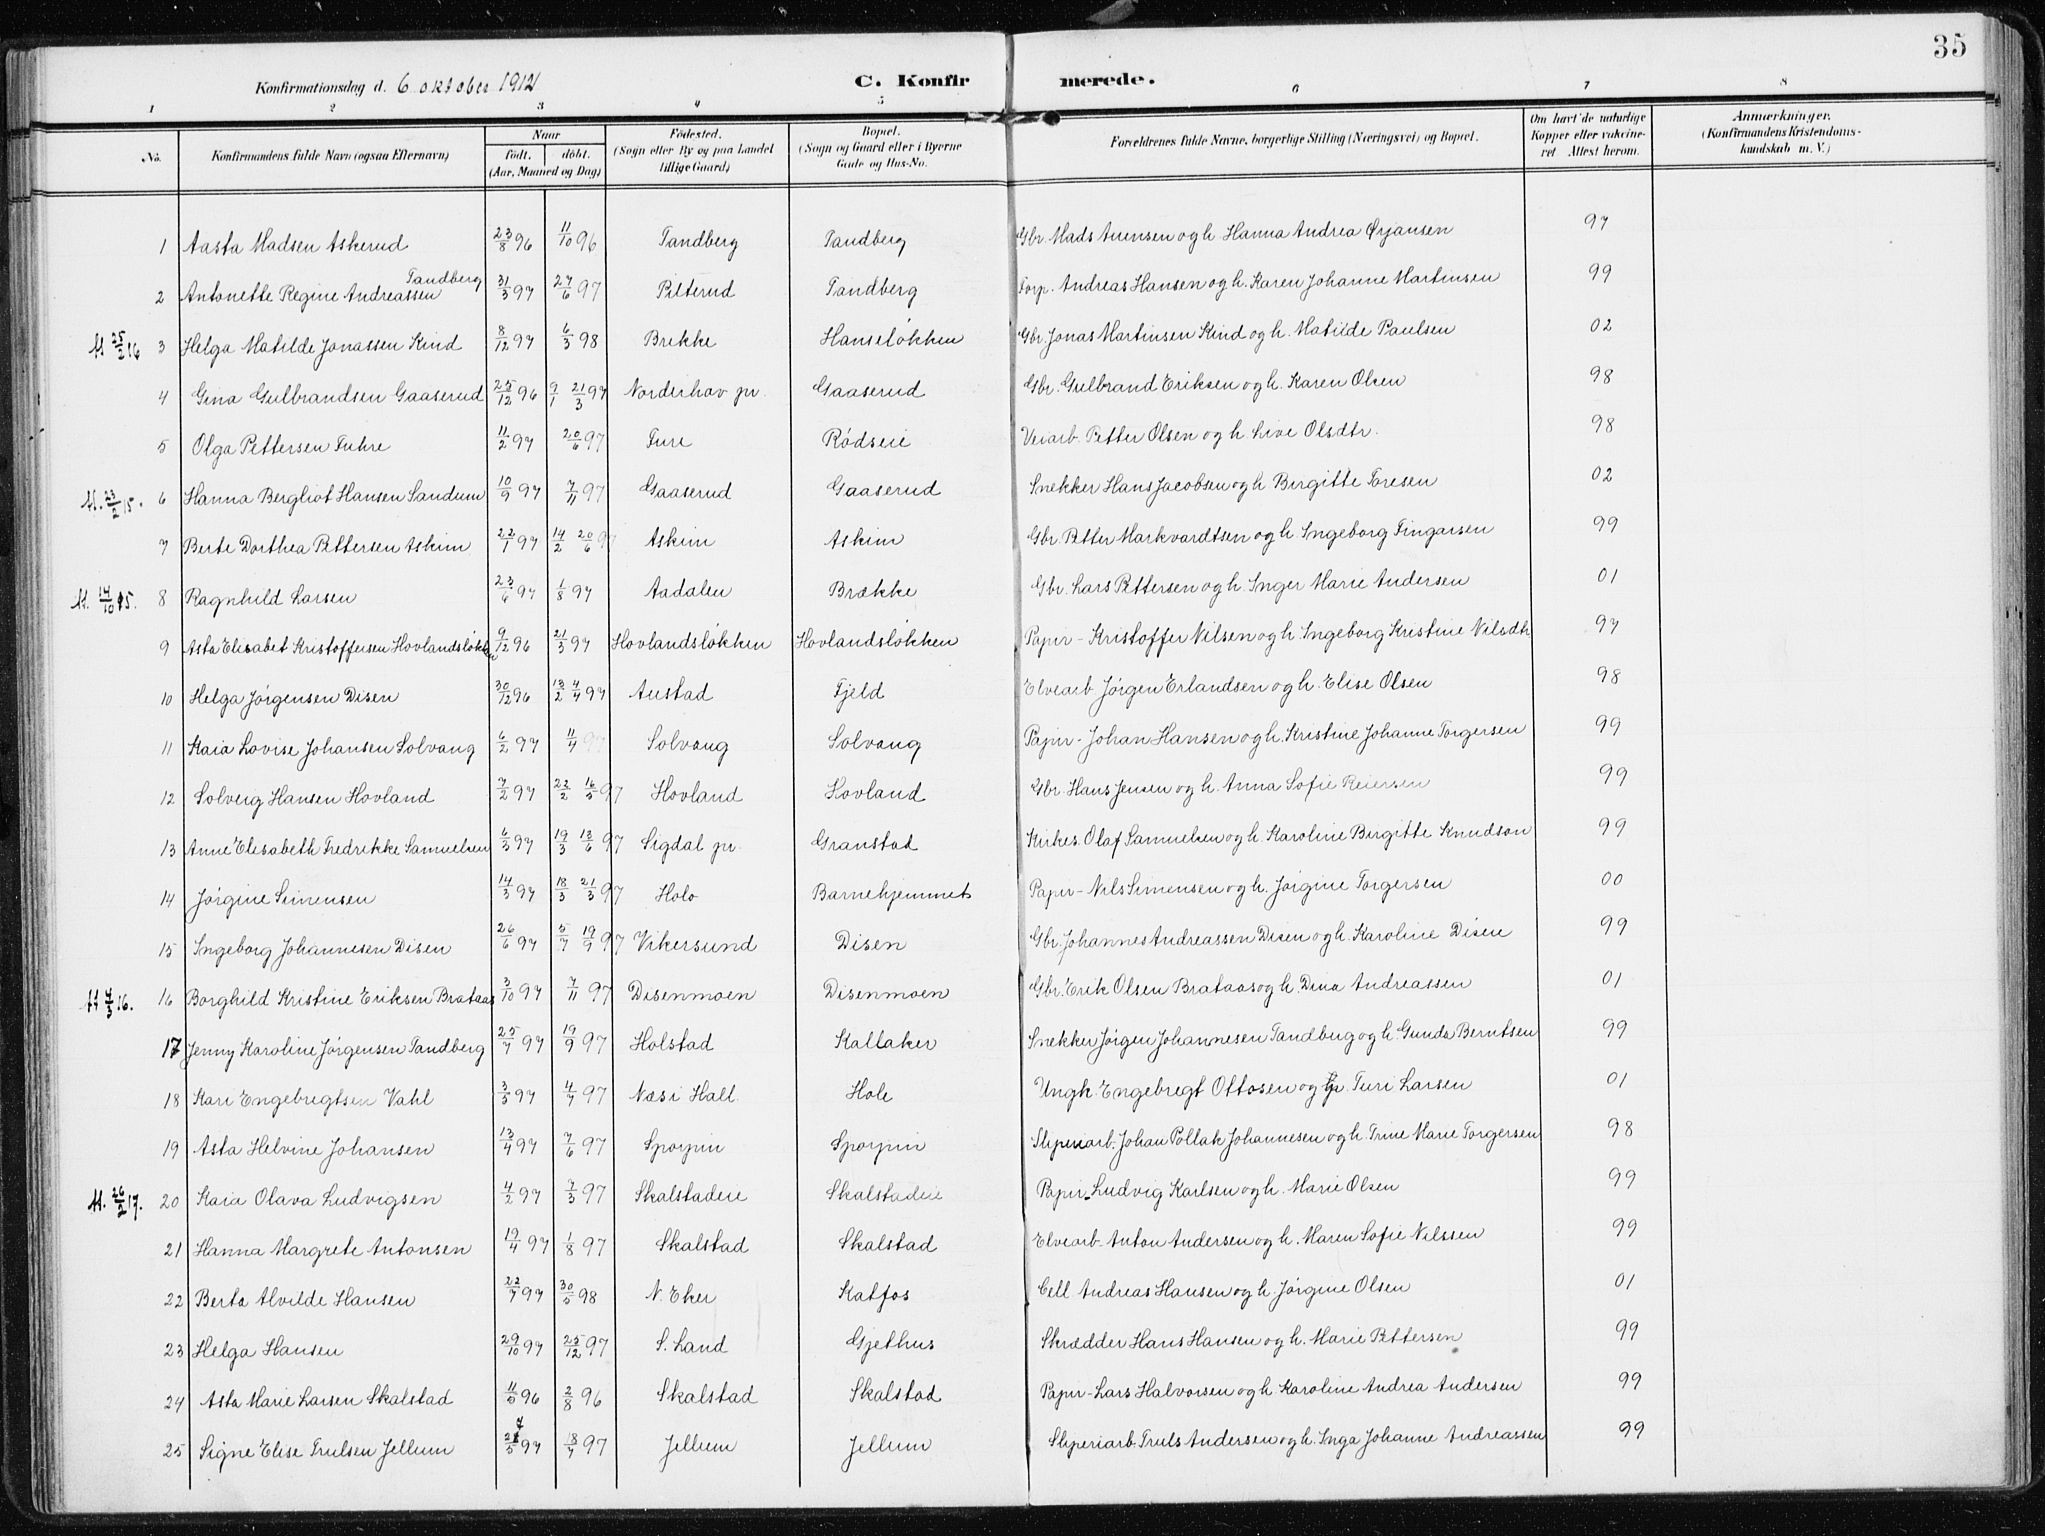 35
Konfirmationsdag d. 6 oktober 1912
C. Konfirmerede.
1 2 3 4 5 6 7 8
No. Konfirmandens fulde Navn (ogsaa Efternavn) Naar født. døbt. (Aar, Maaned og Dag) Fødested. (Sogn eller By og paa Landet tillige Gaard) Bopæl. (Sogn og Gaard eller i Byerne Gade og Hus-No. Forældrenes fulde Navne, borgerlige Stilling (Næringsvei) og Bopæl. Om havt de naturlige Kopper eller vakcineret Attest herom. Anmærkninger. (Konfirmandens Kristendomskundskab m. V.)
1 Aasta Madsen Askerud 23/8 96 11/10 96 Tandberg Tandberg Gbr. Mads Auensen og h. Hanna Andrea Ørjansen 97
2 Antonette Regine Andreassen Tandberg 31/3 97 27/6 97 Pitterud Tandberg Torp. Andreas Hansen og h. Karen Johanne Martinsen 99
25/2 16 3 Helga Matilde Jonassen Kind 8/12 97 6/3 98 Brekke Hanseløkken Gbr. Jonas Martinsen Kind og h. Matilde Paulsen 02
4 Gina Gulbrandsen Gaaserud 25/12 96 9/1 21/3 97 Norderhov pr. Gaaserud Gbr. Gulbrand Eriksen og h. Karen Olsen 98
5 Olga Pettersen Fuhre 11/2 97 20/6 97 Fure Rødseie Veiarb. Petter Olsen og h. Live Olsdtr. 98
23/2 15. 6 Hanna Bergliot Hansen Sandum 10/9 97 7/11 97 Gaaserud Gaaserud Snekker Hans Jacobsen og h. Birgitte Toresen 02
7 Berte Dorthea Pettersen Askim 22/1 97 14/2 20/6 97 Askim Askim Gbr. Petter Markvardtsen og h. Ingeborg Fingarsen 99
14/10 15. 8 Ragnhild Larsen 23/6 97 1/8 97 Aadalen Brække Gbr. Lars Pettersen og h. Inger Marie Andersen 01
9 Asta Elisabet Kristoffersen Hovlandsløkken 9/12 96 21/3 97 Hovlandsløkken Hovlandsløkken Papir- Kristoffer Nilsen og h. Ingeborg Kristine Nilsdtr 97
10 Helga Jørgensen Disen 30/12 96 13/2 4/4 97 Austad Fjeld Elvearb. Jørgen Erlandsen og h. Elise Olsen 98
11 Kaia Lovise Johansen Solvang 6/2 97 11/4 97 Solvang Solvang Papir- Johan Hansen og h. Kristine Johanne Torgersen 99
12 Solveig Hansen Hovland 7/2 97 22/2 16/5 97 Hovland Hovland Gbr. Hans Jensen og h. Anna Sofie Reiersen 99
13 Anne Elisabeth Fredrikke Samuelsen 6/3 97 19/3 13/6 97 Sigdal pr. Granstad Kirkes. Olaf Samuelsen og h. Karoline Birgitte Knudson 99
14 Jørgine Simensen 14/3 97 18/3 21/3 97 Holo Barnehjemmet Papir- Nils Simensen og h. Jørgine Torgersen 00
15 Ingeborg Johannesen Disen 26/6 97 5/7 19/9 97 Vikersund Disen Gbr. Johannes Andreassen Disen og h. Karoline Disen 99
7/3 16. 16 Borghild Kristine Eriksen Brataas 3/10 97 7/11 97 Disenmoen Disenmoen Gbr. Erik Olsen Brataas og h. Dina Andreassen 01
17 Jenny Karoline Jørgensen Tandberg 25/7 97 19/9 97 Holstad Kallaker Snekker Jørgen Johannesen Tandberg og h. Gunda Berntsen 99
18 Kari Engebregtsen Vahl 3/5 97 4/7 97 Næs i Hall. Hole Ungk. Engebregt Ottosen og Turi Larsen 01
19 Asta Helvine Johansen 13/4 97 7/6 97 Spoypin Spoypin Sliperiarb. Johan Pollak Johannesen og h. Trine Marie Torgersen 98
26/2 17. 20 Kaia Olava Ludvigsen 4/2 97 7/3 97 Skalstadeie Skalstadeie Papir- Ludvig Karlsen og h. Marie Olsen 99
21 Hanna Margrete Antonsen 19/4 97 1/8 97 Skalstad Skalstad Elvearb. Anton Andersen og h. Maren Sofie Nilssen 99
22 Berta Alvilde Hansen 22/7 97 30/5 98 N. Eker Katfos Cell Andreas Hansen og h. Jørgine Olsen 01
23 Helga Hansen 29/10 97 25/12 97 S. Land Gjethus Skrædder Hans Hansen og h. Marie Pettersen 99
24 Asta Marie Larsen Skalstad 11/5 96 2/8 96 Skalstad Skalstad Papir- Lars Halvorsen og h. Karoline Andrea Andersen 99
25 Signe Elise Trulsen Jellum 27/5 97 18/7 97 Jellum Jellum Sliperiarb. Truls Andersen og h. Inga Johanne Andreassen 99